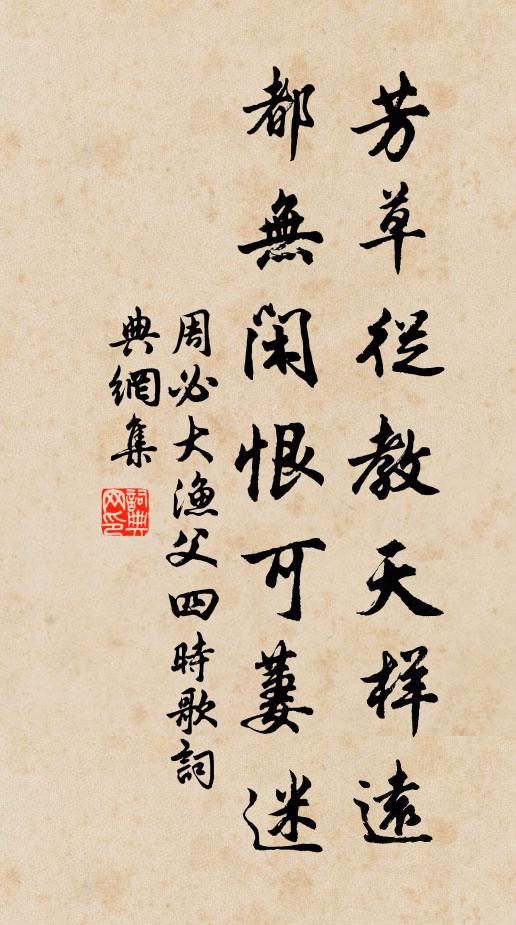 芳草從教天樣遠
都無閑恨可萋迷
周必大漁父四時歌詞
典網集
詞典
网印